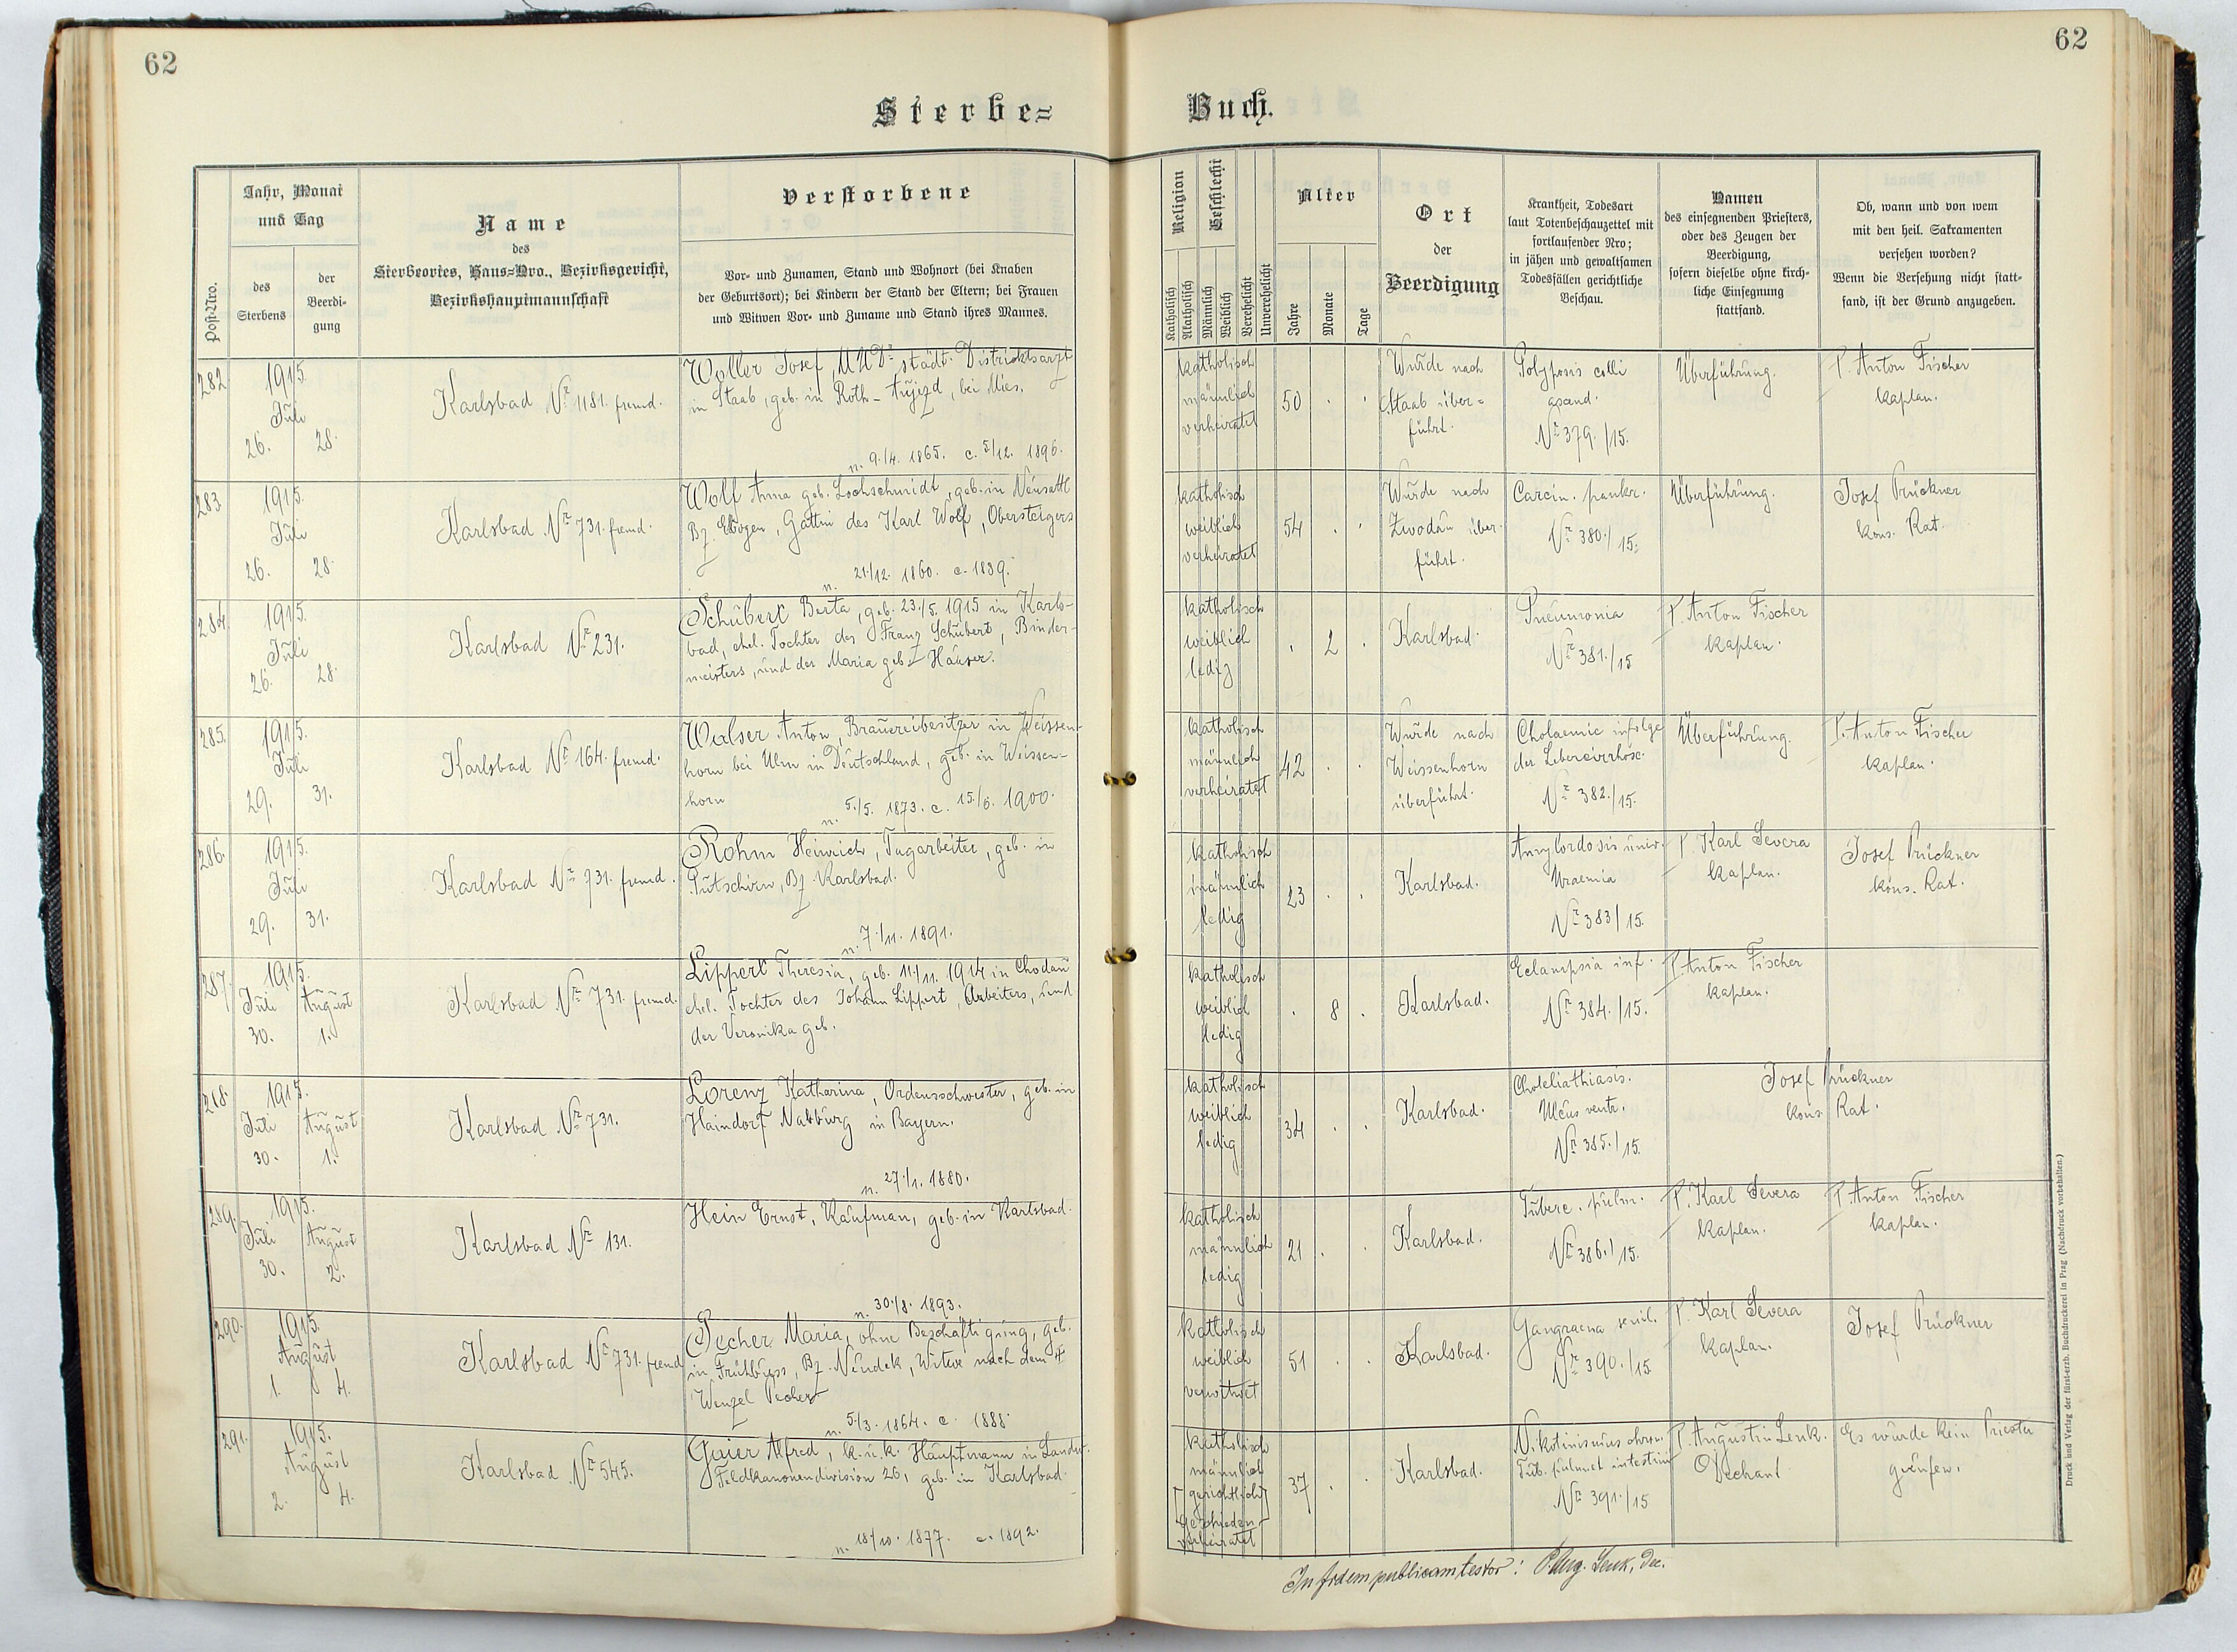 62
62
Sterbe=
Buch.
Post-Nro.
Jahr, Monat
und Tag
des
Sterbens
der
Beerdi-
gung
Name
des
Sterbeortes, Haus=Nro., Bezirksgericht,
Bezirkshauptmannschaft
Verstorbene
Vor- und Zunamen, Stand und Wohnort (bei Knaben
der Geburtsort); bei Kindern der Stand der Eltern; bei Frauen
und Witwen Vor- und Zuname und Stand ihres Mannes.
Religion
Katholisch
Akatholisch
Geschlecht
Männlich
Weiblich
Verehelicht
Unverehelicht
Alter
Jahre
Monate
Tage
Ort
der
Beerdigung
Krankheit, Todesart
laut Totenbeschauzettel mit
fortlaufender Nro;
in jähen und gewaltsamen
Todesfällen gerichtliche
Beschau.
Namen
des einsegnenden Priesters,
oder des Zeugen der
Beerdigung,
sofern dieselbe ohne kirch-
liche Einsegnung
stattfand.
Ob, wann und von wem
mit den heil. Sakramenten
versehen worden?
Wenn die Versehung nicht statt-
fand, ist der Grund anzugeben.
282.
1915.
Juli
26. 28.
Karlsbad Nr. 1181. fremd.
Woller Josef, MUDr. städt. Districktsarzt
in Staab, geb. in Roth-Aujezd, bei Mies.
n. 9./4. 1865. c. 5/12. 1896.
katholisch
männlich
verheiratet
50
Wurde nach
Staab über=
führt.
Polyposis colli
ascend.
Nr. 379./15.
Überführung.
P. Anton Fischer
Kaplan.
283.
1915.
Juli
26. 28.
Karlsbad Nr. 731. fremd.
Wolf Anna geb. Lochschmidt, geb. in Neusattl
Bz. Elbogen, Gattin des Karl Wolf, Obersteigers
n. 21./12. 1860. c. 1889.
katholisch
weiblich
verheiratet
54
Wurde nach
Zwodau über-
führt.
Carcin. pankr.
Nr. 380./15.
Überführung.
Josef Prückner
kons. Rat.
284.
1915.
Juli
26. 28.
Karlsbad Nr. 231.
Schubert Berta, geb. 23./5. 1915 in Karls-
bad, ehel. Tochter des Franz Schubert, Binder-
meisters, und der Maria geb. Hauser.
katholisch
weiblich
ledig
2
Karlsbad.
Pneumonia
Nr. 381./15
P. Anton Fischer
Kaplan.
285.
1915.
Juli
29. 31.
Karlsbad Nr. 164. fremd.
Walser Anton, Brauereibesitzer in Weissen-
horn bei Ulm in Deutschland, geb. in Weissen-
horn
n. 5./5. 1873. c. 15./6. 1900.
katholisch
männlich
verheiratet
42
Wurde nach
Weissenhorn
überführt.
Cholaemie infolge
der Lebercirrhose.
Nr. 382./15.
Überführung.
P. Anton Fischer
Kaplan.
286.
1915.
Juli
29. 31.
Karlsbad Nr. 731. fremd.
Rohm Heinrich, Tagarbeiter, geb. in
Putschirn, Bz. Karlsbad.
n. 7./11. 1891.
katholisch
männlich
ledig
23
Karlsbad.
Amylordosis univ.
Uraemia
Nr. 383/15.
P. Karl Severa
Kaplan.
Josef Prückner
kons. Rat.
287.
1915.
Juli August
30. 1.
Karlsbad Nr. 731. fremd.
Lippert Theresia, geb. 11./11. 1914 in Chodau
ehel. Tochter des Johann Lippert, Arbeiters, und
der Veronika geb.
katholisch
weiblich
ledig
8
Karlsbad.
Eclampsia inf.
Nr. 384./15.
P. Anton Fischer
Kaplan.
218.
1915.
Juli August
30. 1.
Karlsbad Nr. 731.
Lorenz Katharina, Ordensschwester, geb. in
Haindorf Nabburg in Bayern.
n. 27./1. 1880.
katholisch
weiblich
ledig
34
Karlsbad.
Choleliathiasis.
Ulcus ventr.
Nr. 385./15.
Josef Prückner
kons. Rat.
289.
1915.
Juli August
30. 2.
Karlsbad Nr. 131.
Hein Ernst, Kaufman, geb. in Karlsbad.
n. 30./8. 1893.
katholisch
männlich
ledig
21
Karlsbad.
Tuberc. pulm.
Nr. 386./15.
P. Karl Severa
Kaplan.
P. Anton Fischer
Kaplan.
290.
1915.
August
1. 4.
Karlsbad Nr. 731. fremd
Pecher Maria, ohne Beschäftigung, geb.
in Frühbuss, Bz. Neudek, Witwe nach dem †
Wenzel Pecher
n. 5./3. 1864. c. 1888.
katholisch
weiblich
verwitwet
51
Karlsbad.
Gangraena senil.
Nr. 390./15
P. Karl Severa
Kaplan.
Josef Prückner
291.
1915.
August
2. 4.
Karlsbad Nr. 545.
Gaier Alfred, k. u. k. Hauptmann in Landw.
Feldkanonendivision 26, geb. in Karlsbad.
n. 18/10. 1877. c. 1892.
katholisch
männlich
[gerichtlich]
geschieden
verheiratet
37
Karlsbad.
Nikotinismus chron.
Tub. pulm. et intestini
Nr. 391./15
P. Augustin Lenk.
Dechant
Es wurde kein Priester
gerufen.
In fidem publicam testor: P. Aug. Lenk, Dec.
Druck und Verlag der fürst-erzb. Buchdruckerei in Prag (Nachdruck vorbehalten.)